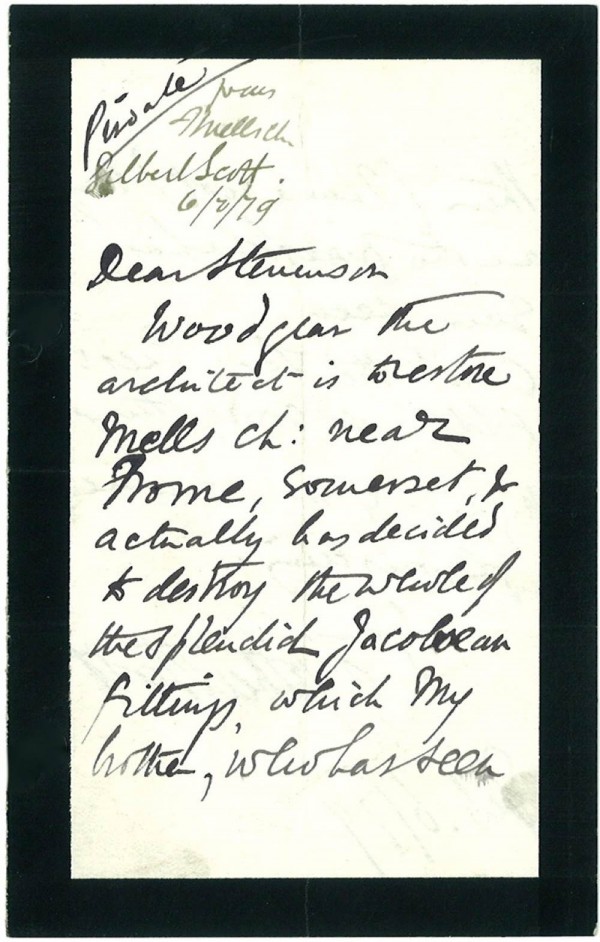 Private
from
Mells ch.
Gilbert Scott.
6/7/79
Dear Stevenson
Woodyear the
architect is to restore
Mells ch: near
Frome, Somerset, &
actually has decided
to destroy the whole of
the splendid Jacobean
fittings, which My
brother, who has seen